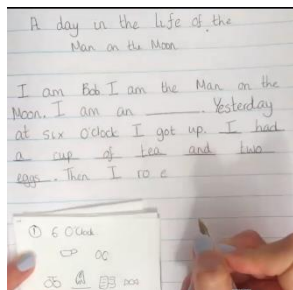 A day in the life of the
Man on the Moon
I am Bob I am the Man on the
Moon. I am an ________. Yesterday
at six o'clock I got up. I had
a cup of tea and two
eggs. Then I ro e
① 6 O'Clock